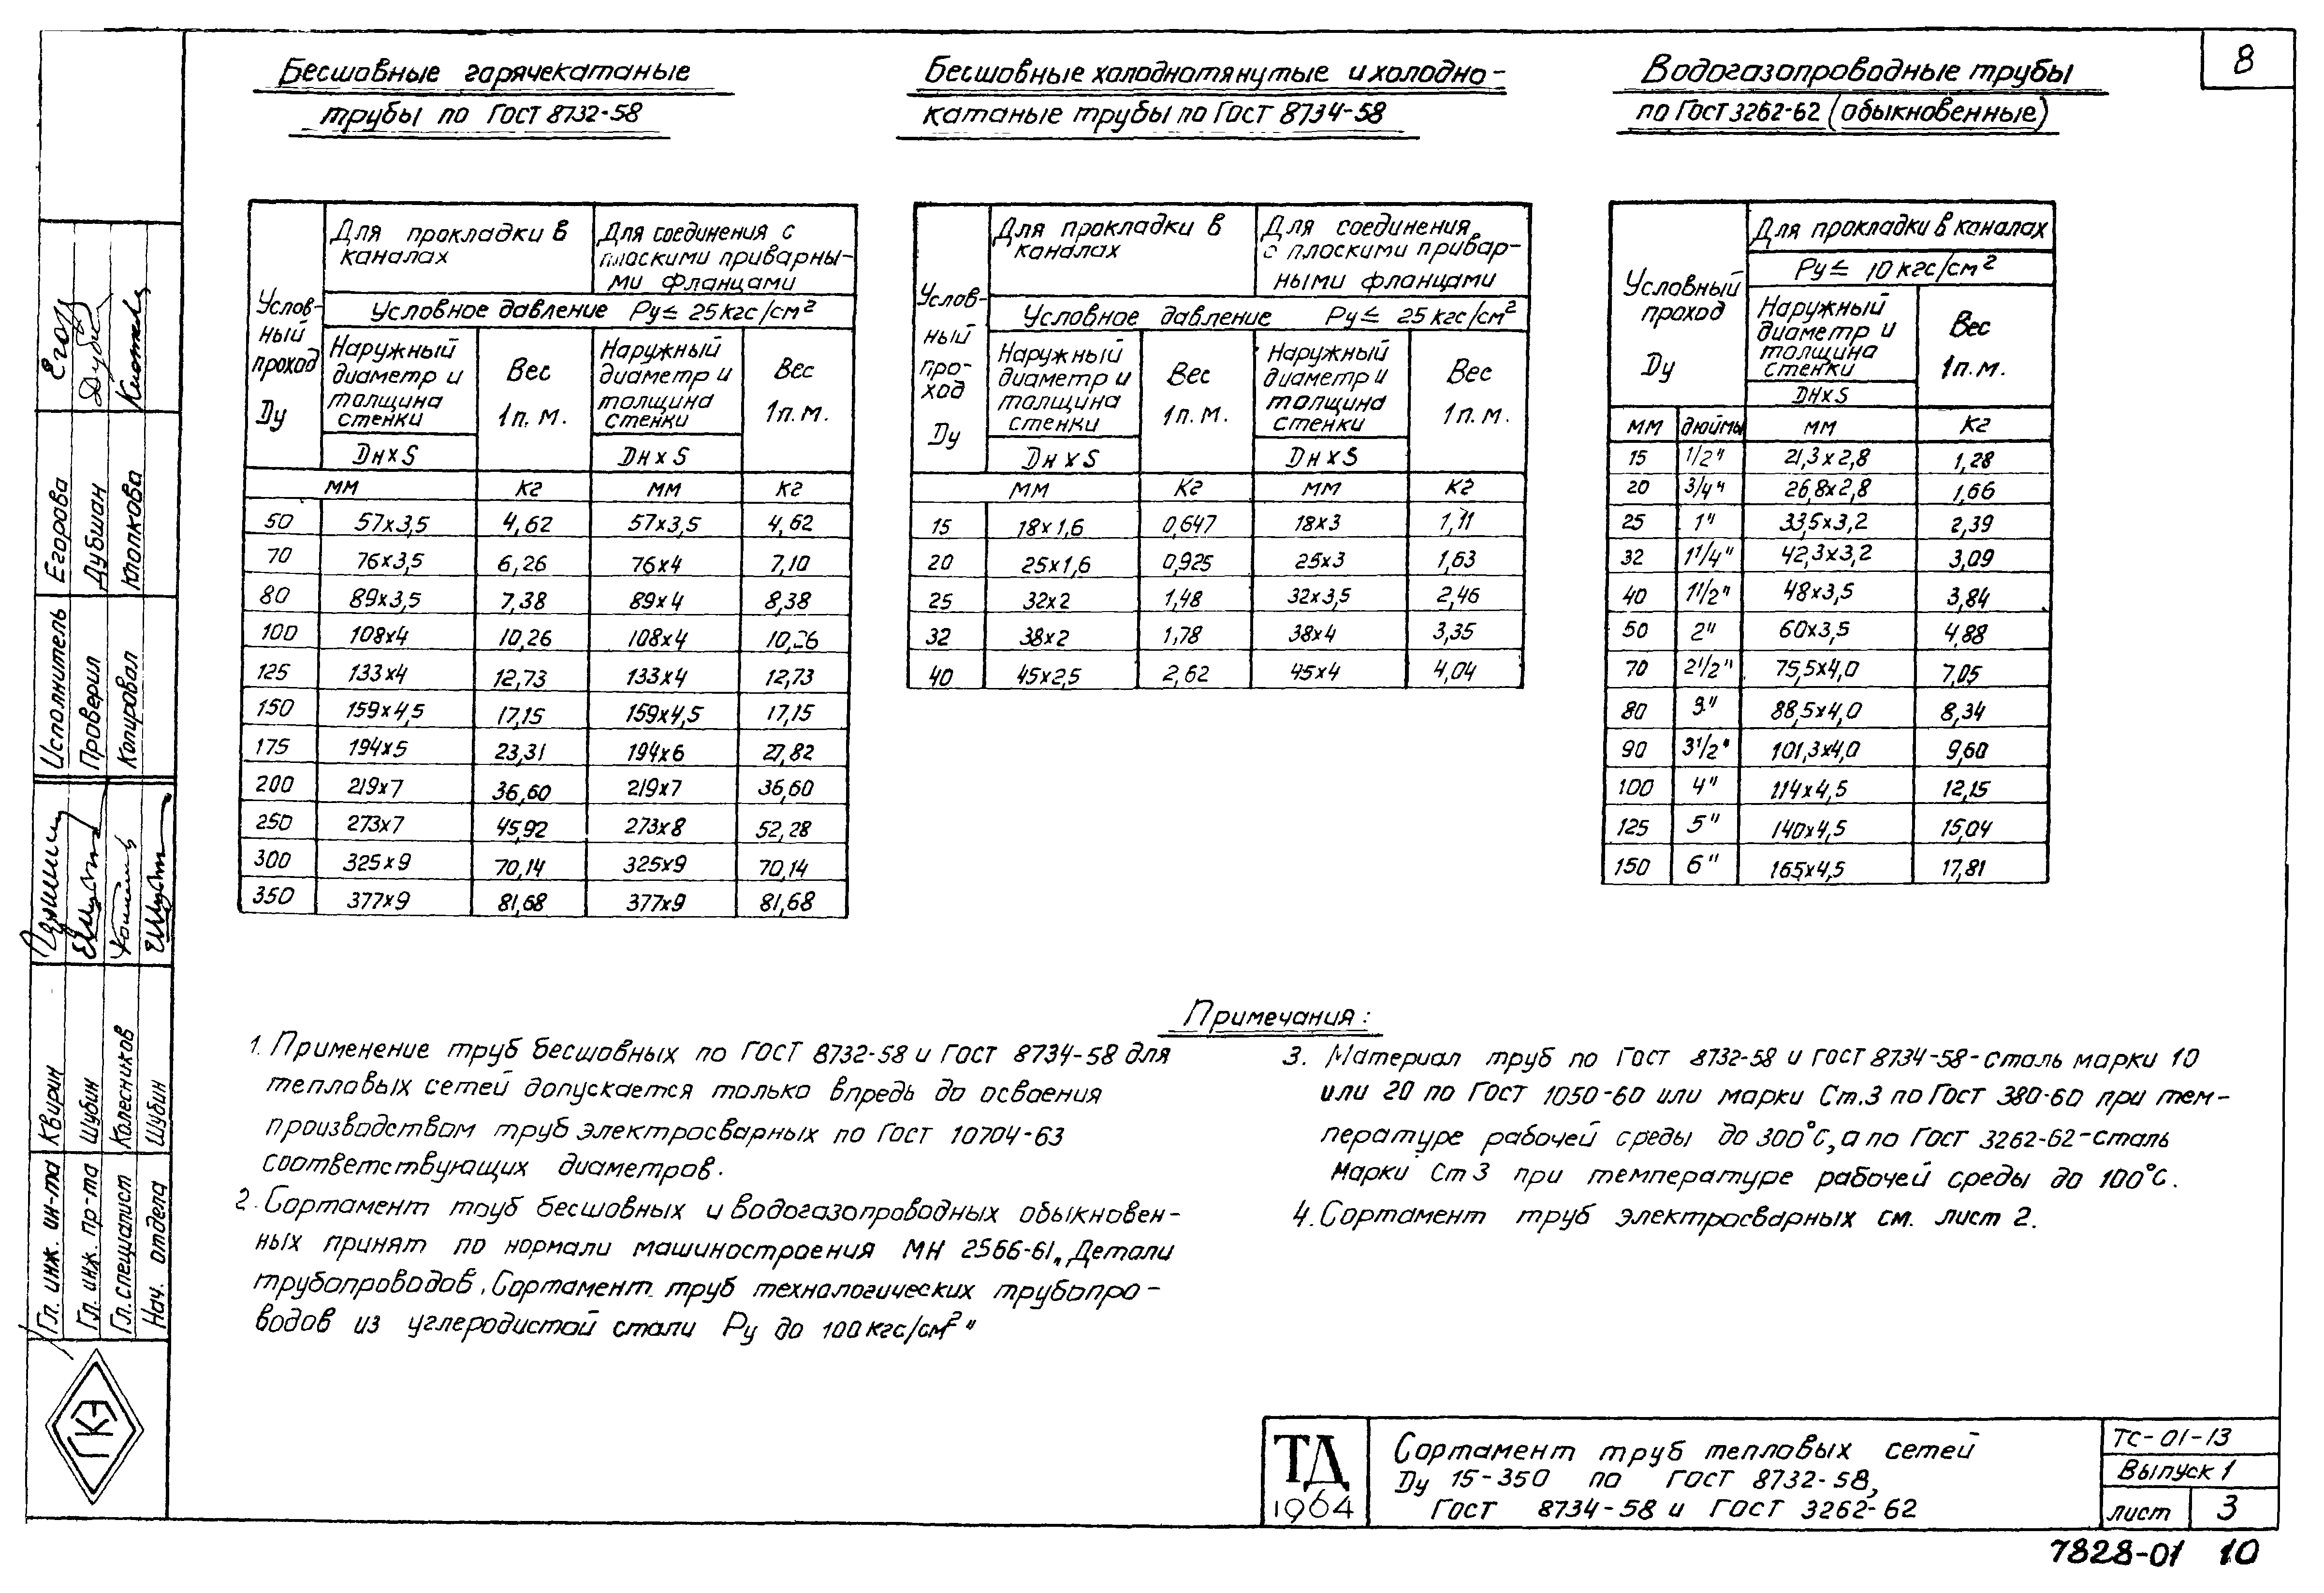 8
Бесшовные горячекатаные
трубы по ГОСТ 8732-58
Для прокладки в каналах
Для соединения с плоскими приварными фланцами
Условный проход Dу
Условное давление Ру ≤ 25 кгс/см²
Наружный диаметр и толщина стенки
Вес 1 п.м.
Наружный диаметр и толщина стенки
Вес 1 п.м.
Dн х S
Dн х S
мм кг мм кг
50 57х3,5 4,62 57х3,5 4,62
70 76х3,5 6,26 76х4 7,10
80 89х3,5 7,38 89х4 8,38
100 108х4 10,26 108х4 10,26
125 133х4 12,73 133х4 12,73
150 159х4,5 17,15 159х4,5 17,15
175 194х5 23,31 194х6 27,82
200 219х7 36,60 219х7 36,60
250 273х7 45,92 273х8 52,28
300 325х9 70,14 325х9 70,14
350 377х9 81,68 377х9 81,68
Бесшовные холоднотянутые и холодно-
катаные трубы по ГОСТ 8734-58
Для прокладки в каналах
Для соединения с плоскими приварными фланцами
Условный проход Dу
Условное давление Ру ≤ 25 кгс/см²
Наружный диаметр и толщина стенки
Вес 1 п.м.
Наружный диаметр и толщина стенки
Вес 1 п.м.
Dн х S
Dн х S
мм кг мм кг
15 18х1,6 0,647 18х3 1,11
20 25х1,6 0,925 25х3 1,63
25 32х2 1,48 32х3,5 2,46
32 38х2 1,78 38х4 3,35
40 45х2,5 2,62 45х4 4,04
Водогазопроводные трубы
по ГОСТ 3262-62 (обыкновенные)
Условный проход Dу
Для прокладки в каналах
Ру ≤ 10 кгс/см²
Наружный диаметр и толщина стенки
Вес 1 п.м.
Dн х S
мм дюймы мм кг
15 1/2" 21,3х2,8 1,28
20 3/4" 26,8х2,8 1,66
25 1" 33,5х3,2 2,39
32 1 1/4" 42,3х3,2 3,09
40 1 1/2" 48х3,5 3,84
50 2" 60х3,5 4,88
70 2 1/2" 75,5х4,0 7,05
80 3" 88,5х4,0 8,34
90 3 1/2" 101,3х4,0 9,60
100 4" 114х4,5 12,15
125 5" 140х4,5 15,04
150 6" 165х4,5 17,81
Примечания:
1. Применение труб бесшовных по ГОСТ 8732-58 и ГОСТ 8734-58 для
тепловых сетей допускается только впредь до освоения
производством труб электросварных по ГОСТ 10704-63
соответствующих диаметров.
2. Сортамент труб бесшовных и водогазопроводных обыкновен-
ных принят по нормали машиностроения МН 2566-61 „Детали
трубопроводов. Сортамент труб технологических трубопро-
водов из углеродистой стали Ру до 100 кгс/см²"
3. Материал труб по ГОСТ 8732-58 и ГОСТ 8734-58-сталь марки 10
или 20 по ГОСТ 1050-60 или марки Ст.3 по ГОСТ 380-60 при тем-
пературе рабочей среды до 300°С, а по ГОСТ 3262-62-сталь
марки Ст 3 при температуре рабочей среды до 100°С.
4. Сортамент труб электросварных см. лист 2.
Исполнитель Егорова
Проверил Дубшан
Копировал Клопкова
Гл. инж. ин-та Квирин
Гл. инж. пр-та Шубин
Гл. специалист Колесников
Нач. отдела Шубин
ГКЭ
ТД
1964
Сортамент труб тепловых сетей
Dу 15-350 по ГОСТ 8732-58,
ГОСТ 8734-58 и ГОСТ 3262-62
ТС-01-13
Выпуск 1
лист 3
7828-01 10